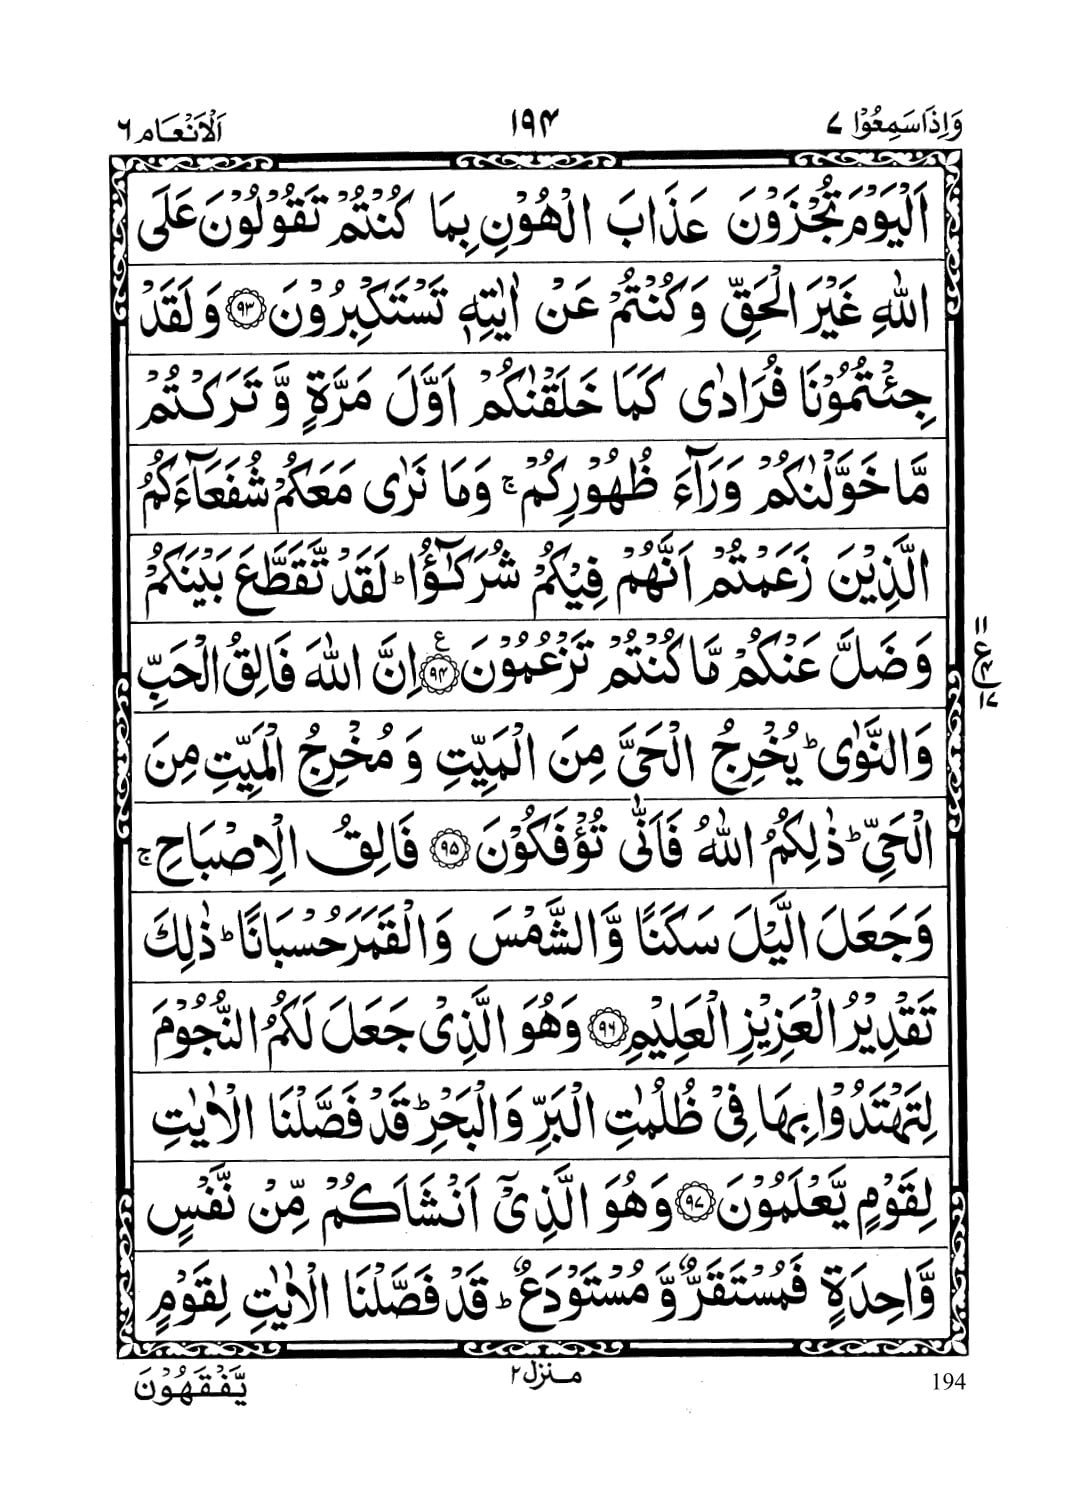 وَاِذَاسَمِعُوْا ۷
۱۹۴
اَلْاَنْعَام ۶
اَلْيَوْمَ تُجْزَوْنَ عَذَابَ الْهُوْنِ بِمَا كُنْتُمْ تَقُوْلُوْنَ عَلَى
اللّٰهِ غَيْرَ الْحَقِّ وَكُنْتُمْ عَنْ اٰيٰتِهٖ تَسْتَكْبِرُوْنَ ۹۳ وَلَقَدْ
جِئْتُمُوْنَا فُرَادٰى كَمَا خَلَقْنٰكُمْ اَوَّلَ مَرَّةٍ وَّ تَرَكْتُمْ
مَّا خَوَّلْنٰكُمْ وَرَآءَ ظُهُوْرِكُمْ ۚ وَمَا نَرٰى مَعَكُمْ شُفَعَآءَكُمُ
الَّذِيْنَ زَعَمْتُمْ اَنَّهُمْ فِيْكُمْ شُرَكٰٓؤُا ؕ لَقَدْ تَّقَطَّعَ بَيْنَكُمْ
وَضَلَّ عَنْكُمْ مَّا كُنْتُمْ تَزْعُمُوْنَ ۹۴ ع اِنَّ اللّٰهَ فَالِقُ الْحَبِّ
وَالنَّوٰى ؕ يُخْرِجُ الْحَيَّ مِنَ الْمَيِّتِ وَ مُخْرِجُ الْمَيِّتِ مِنَ
الْحَيِّ ؕ ذٰلِكُمُ اللّٰهُ فَاَنّٰى تُؤْفَكُوْنَ ۹۵ فَالِقُ الْاِصْبَاحِ ۚ
وَجَعَلَ الَّيْلَ سَكَنًا وَّالشَّمْسَ وَالْقَمَرَ حُسْبَانًا ؕ ذٰلِكَ
تَقْدِيْرُ الْعَزِيْزِ الْعَلِيْمِ ۹۶ وَهُوَ الَّذِيْ جَعَلَ لَكُمُ النُّجُوْمَ
لِتَهْتَدُوْا بِهَا فِيْ ظُلُمٰتِ الْبَرِّ وَالْبَحْرِ ؕ قَدْ فَصَّلْنَا الْاٰيٰتِ
لِقَوْمٍ يَّعْلَمُوْنَ ۹۷ وَهُوَ الَّذِيْۤ اَنْشَاَكُمْ مِّنْ نَّفْسٍ
وَّاحِدَةٍ فَمُسْتَقَرٌّ وَّ مُسْتَوْدَعٌ ؕ قَدْ فَصَّلْنَا الْاٰيٰتِ لِقَوْمٍ
۱۱
ع ۴
۱۷
يَّفْقَهُوْنَ
منزل ۲
194